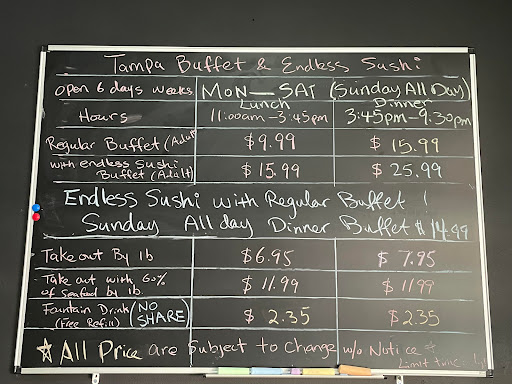 Tampa Buffet & Endless Sushi
Open 6 days weeks MON — SAT (Sunday All Day)
Lunch Dinner
Hours 11:00am - 3:45pm 3:45pm - 9:30pm
Regular Buffet (Adult $9.99 $15.99
with endless Sushi
Buffet (Adult) $15.99 $25.99
Endless Sushi with Regular Buffet !
Sunday All day Dinner Buffet $14.99
Take out By lb $6.95 $7.95
Take out with 60%
of Seafood by lb. $11.99 $11.99
Fountain Drink (NO
(Free Refill) SHARE) $2.35 $2.35
All Price are Subject to Change w/o Notice
Limit time